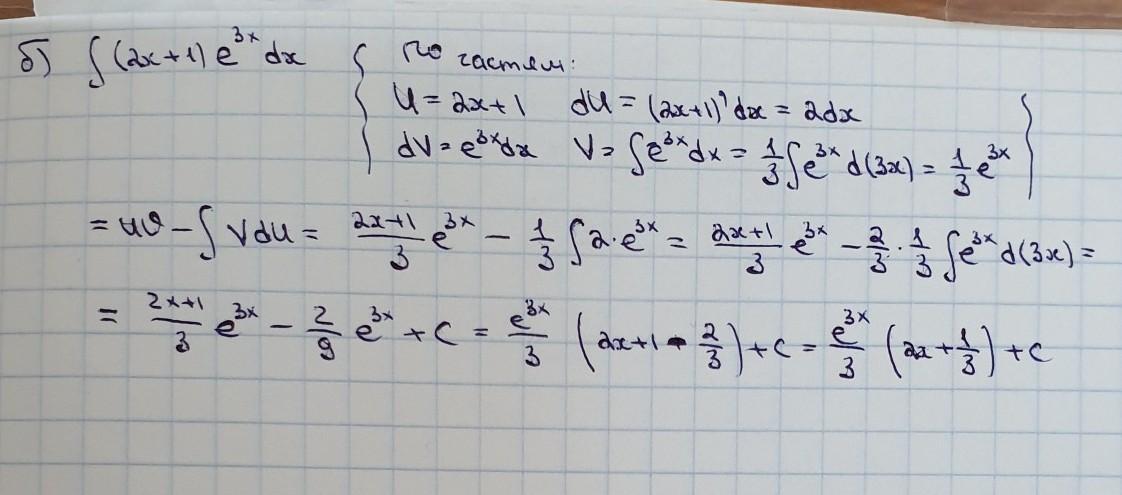 б) ∫ (2x+1) e^{3x} dx { По частям:
U = 2x+1 dU = (2x+1)' dx = 2dx
dV = e^{3x}dx V = ∫ e^{3x} dx = 1/3 ∫ e^{3x} d(3x) = 1/3 e^{3x} }
= uv − ∫ VdU = (2x+1)/3 e^{3x} − 1/3 ∫ 2·e^{3x} = (2x+1)/3 e^{3x} − 2/3 · 1/3 ∫ e^{3x} d(3x) =
= (2x+1)/3 e^{3x} − 2/9 e^{3x} + C = e^{3x}/3 (2x+1 − 2/3) + C = e^{3x}/3 (2x + 1/3) + C